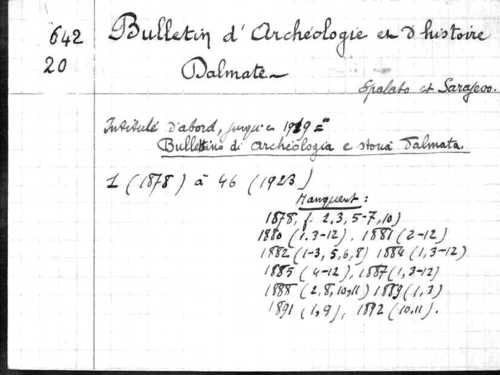 642 Bulletin d'Archéologie et d'histoire
20 Dalmate
Spalato et Sarajevo.
Intitulé d'abord, jusqu'en 1919 =
Bullettino di Archeologia e storia Dalmata.
1 (1878) à 46 (1923)
Manquent :
1878, f. 2,3,5-7,10)
1880 (1.3-12), 1881 (2-12)
1882 (1-3,5,6,8) 1884 (1,3-12)
1885 (4-12), 1887 (1,3-12)
1888 (2,8,10,11) 1889 (1,3)
1891 (1,9), 1892 (10.11).